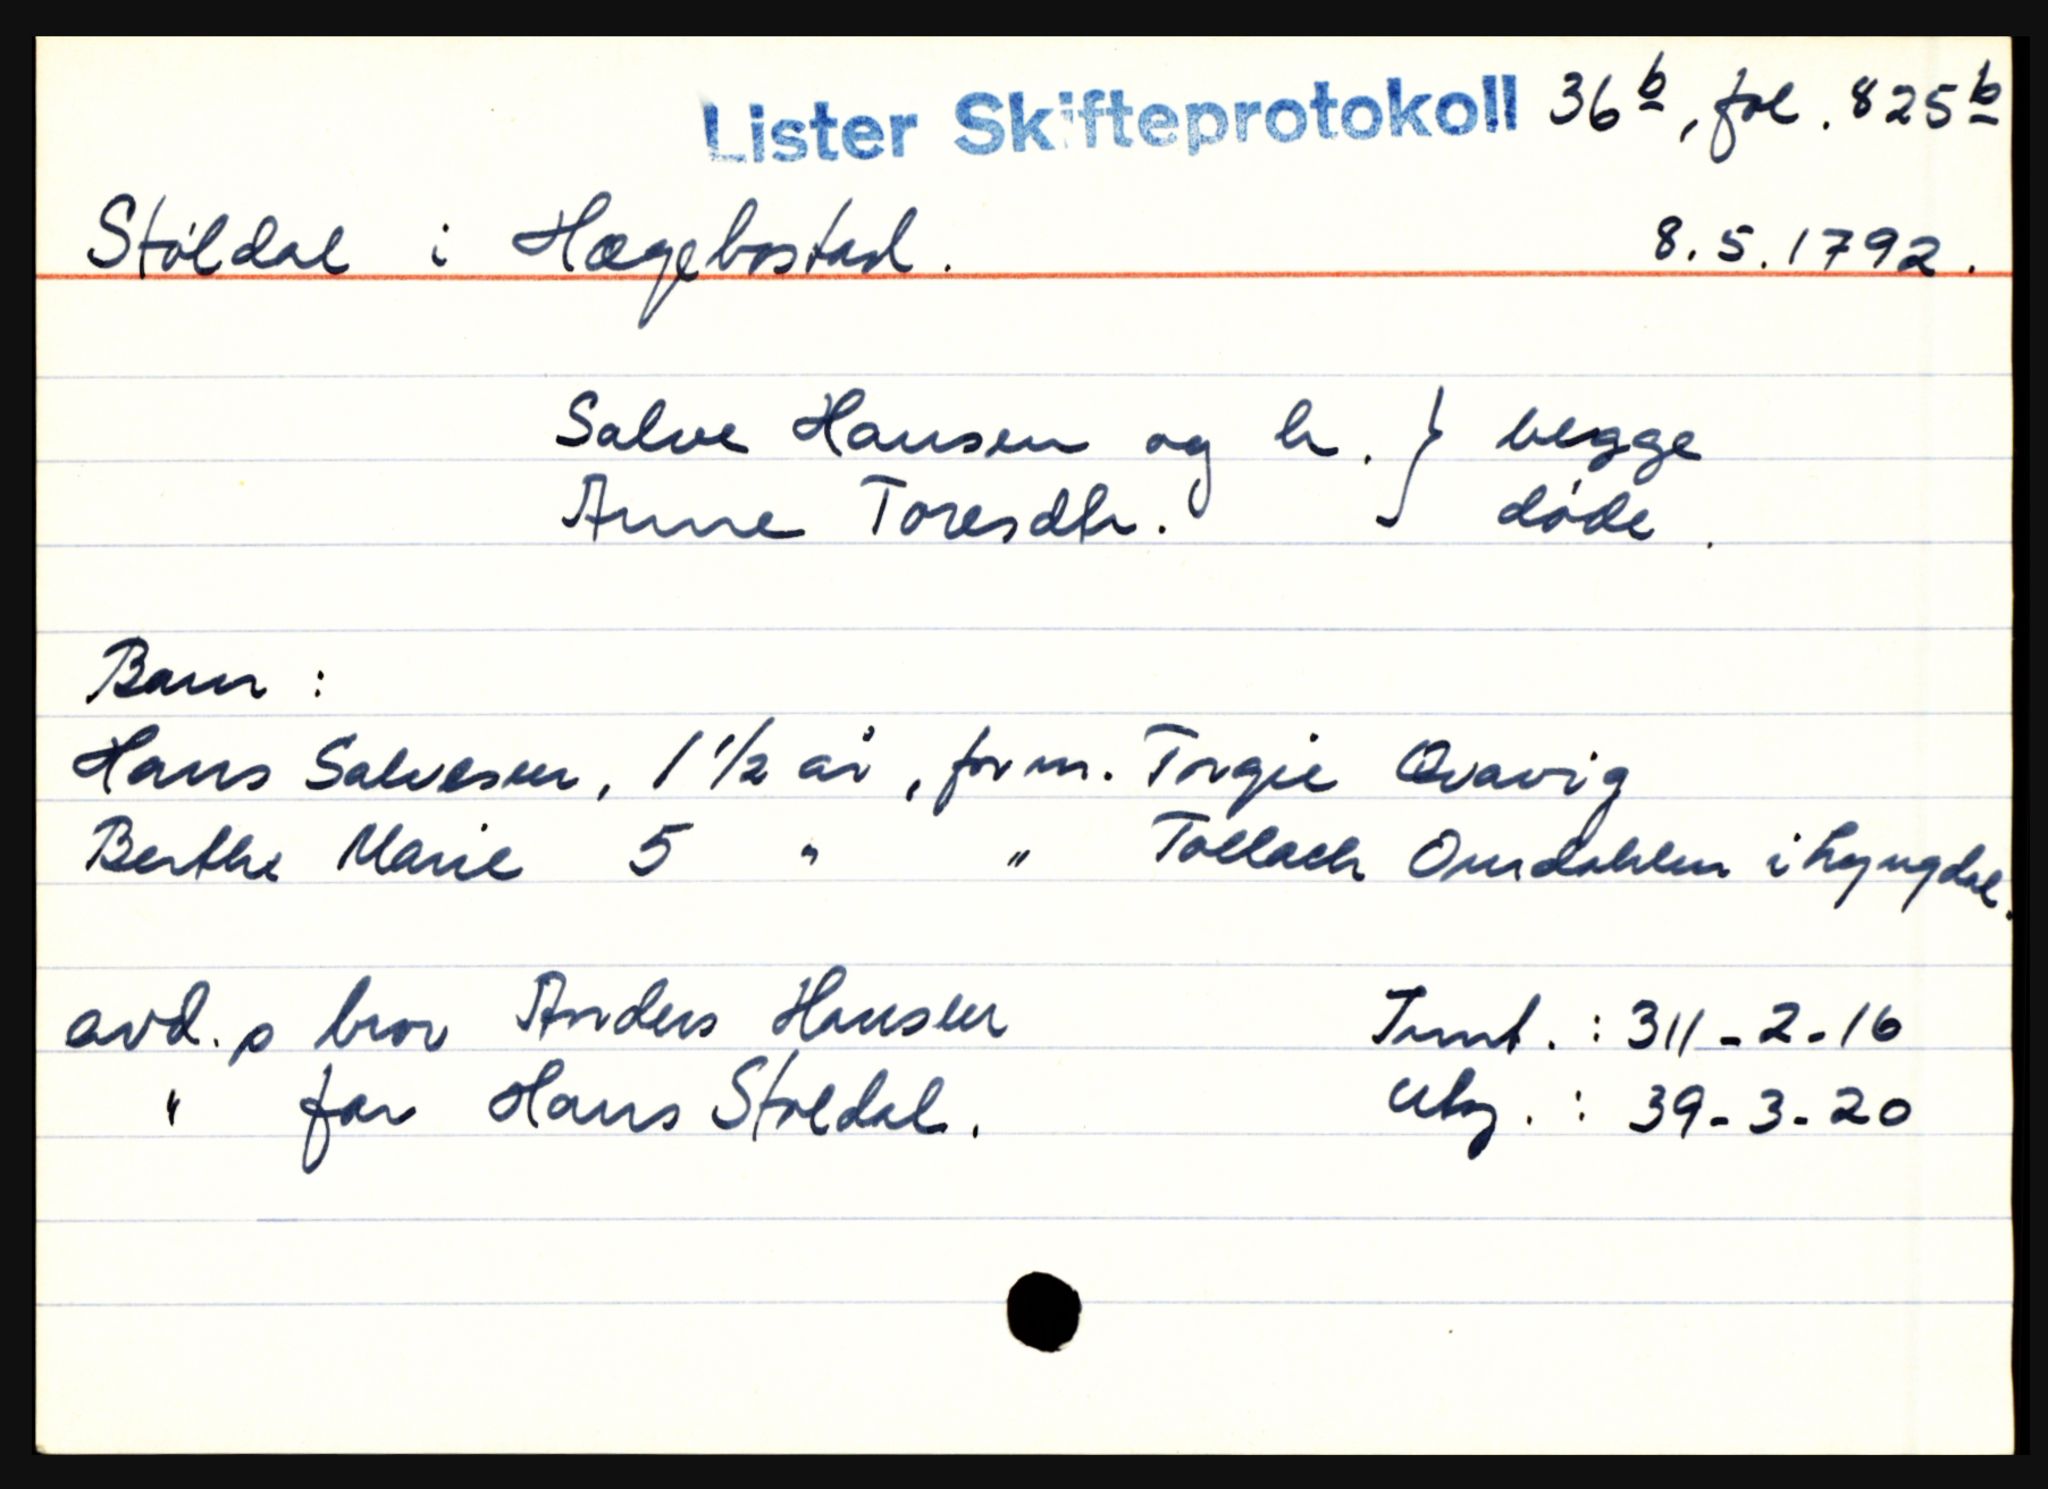 Lister Skifteprotokoll 36b, fol. 825b
Støldal i Hægebostad. 8.5.1792.
Salve Hansen og h. } begge
Anne Toresdtr. døde.
Barn:
Hans Salvesen, 1 1/2 år, form. Torgie Qvavig
Berthe Marie 5 " " Tollach Omdahlen i Lyngdal.
avd. s bror Anders Hansen Innt.: 311-2-16
" far Hans Støldal. Utg.: 39-3-20